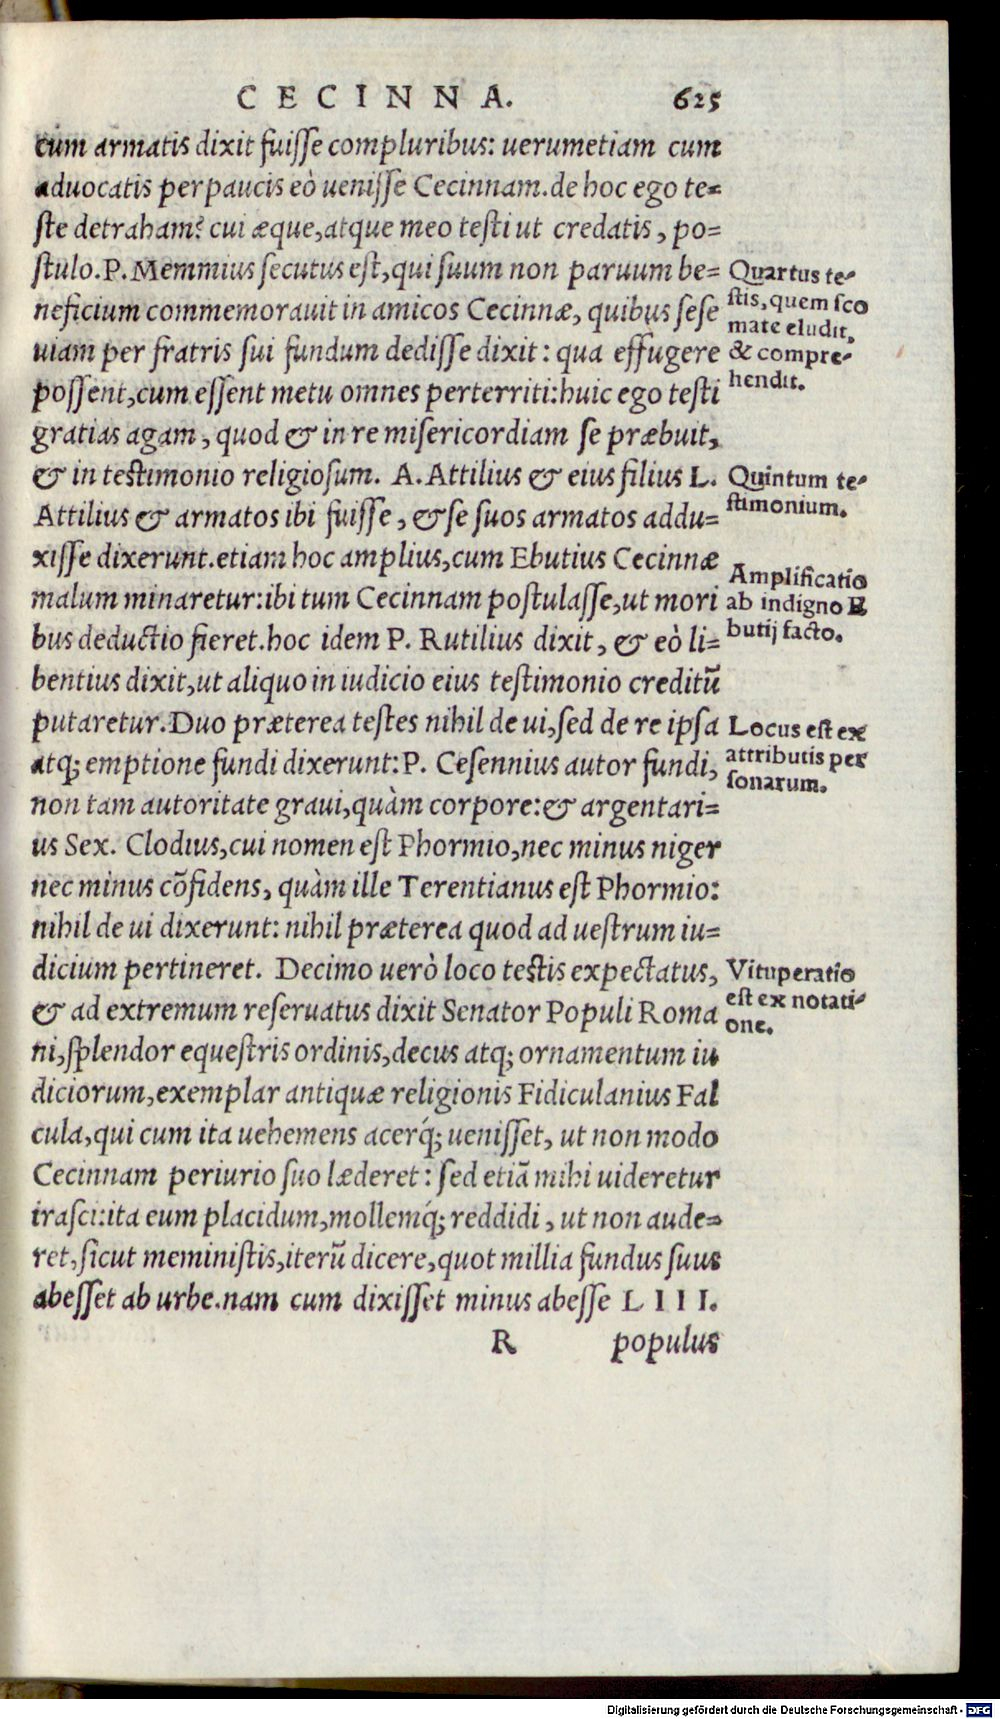 CECINNA. 625
cum armatis dixit fuisse compluribus: uerumetiam cum
aduocatis perpaucis eò uenisse Cecinnam. de hoc ego te=
ste detraham? cui æque, atque meo testi ut credatis, po=
stulo. P. Memmius secutus est, qui suum non paruum be=
neficium commemorauit in amicos Cecinnæ, quibus sese
uiam per fratris sui fundum dedisse dixit: qua effugere
possent, cum essent metu omnes perterriti: huic ego testi
gratias agam, quod & in re misericordiam se præbuit,
& in testimonio religiosum. A. Attilius & eius filius L.
Attilius & armatos ibi fuisse, & se suos armatos addu=
xisse dixerunt. etiam hoc amplius, cum Ebutius Cecinnæ
malum minaretur: ibi tum Cecinnam postulasse, ut mori
bus deductio fieret. hoc idem P. Rutilius dixit, & eò li=
bentius dixit, ut aliquo in iudicio eius testimonio creditũ
putaretur. Duo præterea testes nihil de ui, sed de re ipsa
atq; emptione fundi dixerunt: P. Cesennius autor fundi,
non tam autoritate graui, quàm corpore: & argentari=
us Sex. Clodius, cui nomen est Phormio, nec minus niger
nec minus cõfidens, quàm ille Terentianus est Phormio:
nihil de ui dixerunt: nihil præterea quod ad uestrum iu=
dicium pertineret. Decimo uerò loco testis expectatus,
& ad extremum reseruatus dixit Senator Populi Roma
ni, splendor equestris ordinis, decus atq; ornamentum iu
diciorum, exemplar antiquæ religionis Fidiculanius Fal
cula, qui cum ita uehemens acerq́; uenisset, ut non modo
Cecinnam periurio suo læderet: sed etiã mihi uideretur
irasci: ita eum placidum, mollemq́; reddidi, ut non aude=
ret, sicut meministis, iterũ dicere, quot millia fundus suus
abesset ab urbe. nam cum dixisset minus abesse LIII.
R populus
Quartus te=
stis, quem sco
mate eludit,
& compre=
hendit.
Quintum te=
stimonium.
Amplificatio
ab indigno E
butij facto.
Locus est ex
attributis per
sonarum.
Vituperatio
est ex notati=
one.
Digitalisierung gefördert durch die Deutsche Forschungsgemeinschaft - DFG